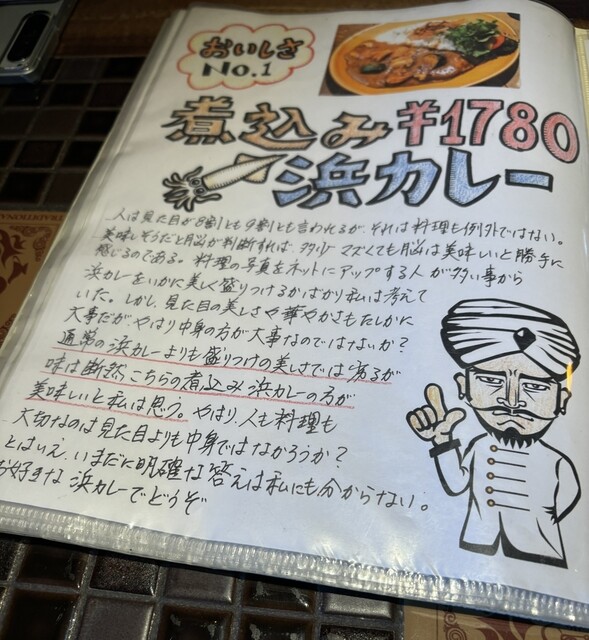 おいしさ
No.1
煮込み ¥1780
浜カレー
人は見た目が8割とも9割とも言われるが、それは料理も例外ではない。
美味しそうだと脳が判断すれば 多少 マズくても脳は美味しいと勝手に
感じるのである。料理の写真をネットにアップする人が多い事から
浜カレーをいかに美しく盛りつけるかばかり私は考えて
いた。しかし、見た目の美しさや華やかさもたしかに
大事だが、やはり中身の方が大事なのではないか?
通常の浜カレーよりも盛りつけの美しさでは劣るが
味は断然こちらの煮込み浜カレーの方が
美味しいと私は思う。やはり、人も料理も
大切なのは見た目よりも中身ではなかろうか?
とはいえ、いまだに明確な答えは私にも分からない。
お好きな浜カレーでどうぞ